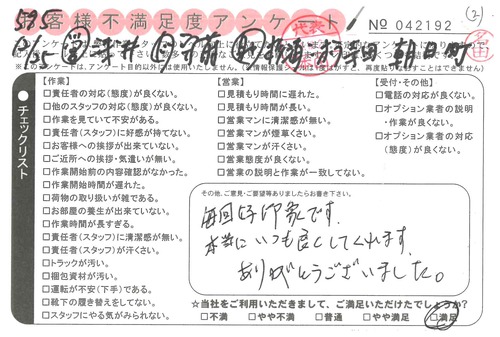 595
お客様不満足度アンケート
No 042192
(2)
代表
朝日町
チェックリスト
【作業】
□責任者の対応(態度)が良くない。
□他のスタッフの対応(態度)が良くない。
□作業を見ていて不安がある。
□責任者(スタッフ)に好感が持てない。
□お客様への挨拶が出来ていない。
□ご近所への挨拶・気遣いが無い。
□作業開始前の内容確認がなかった。
□作業開始時間が遅れた。
□荷物の取り扱いが雑である。
□お部屋の養生が出来ていない。
□作業時間が長すぎる。
□責任者(スタッフ)に清潔感が無い。
□責任者(スタッフ)が汗くさい。
□トラックが汚い。
□梱包資材が汚い。
□運転が安(下手)である。
□靴下の履き替えをしてない。
□スタッフにやる気がみられない。
【営業】
□見積もり時間に遅れた。
□見積もり時間が長い。
□営業マンに清潔感が無い。
□営業マンが煙草くさい。
□営業マンが汗くさい。
□営業態度が良くない。
□営業の説明と作業が一致してない。
【受付・その他】
□電話の対応が良くない。
□オプション業者の説明
・作業が良くない。
□オプション業者の対応
(態度)が良くない。
その他、ご意見・ご要望等ありましたらお書き下さい。
毎回好印象です。
本当にいつも良くしてくれます。
ありがとうございました。
☆当社をご利用いただきまして、ご満足いただけたでしょうか?
□不満 □やや不満 □普通 □やや満足 □満足